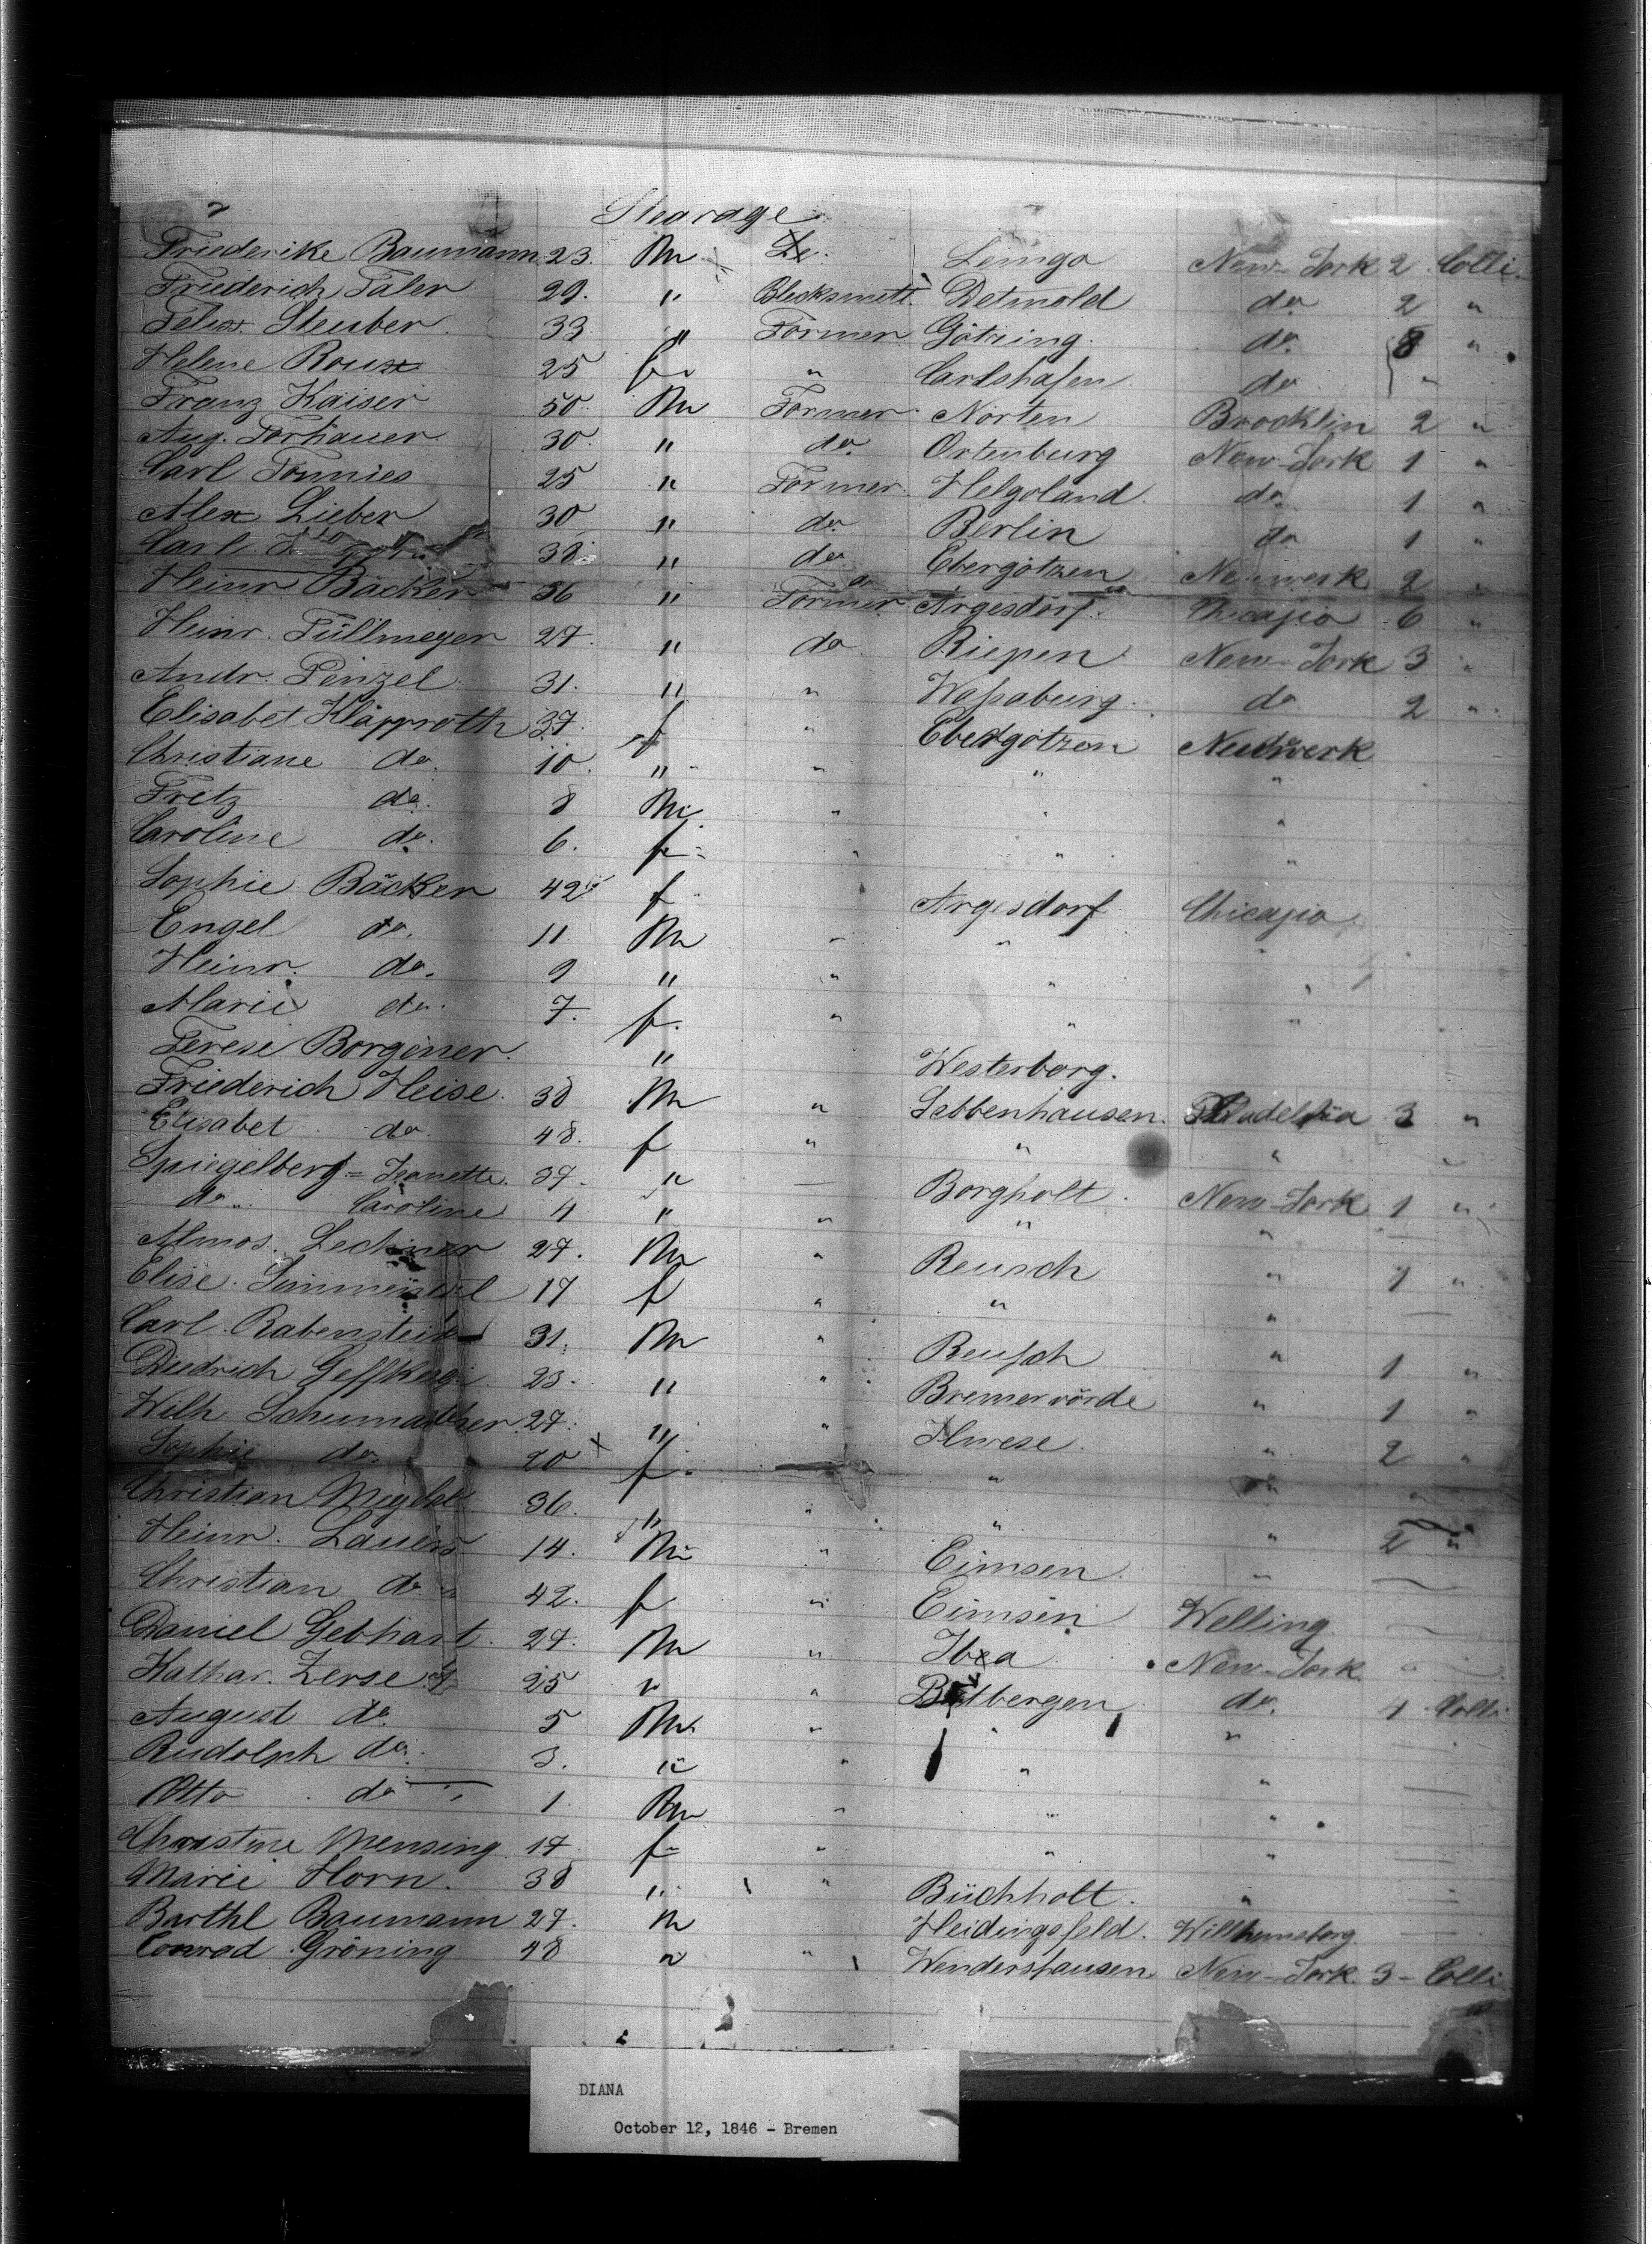 2
Stearage
Friederike Baumann 23. M Lemgo New-York 2 Colli
Friederich Taler 29. " Blecksmitt. Detmold do 2 "
Felix Steuber 33 " Former Götting. do. 8 "
Helene Roux 25 f " Carlshafen do "
Franz Kaiser 50 M Former Nörten Brooklin 2 "
Aug. Forhauer 30. " do. Ortenburg New-York 1 "
Carl Tönnies 25 " Former Helgoland do. 1 "
Alex Lieber 30 " do Berlin do 1 "
Carl 38 " do Ebergötzen 2 "
Heinr Bäcker 36 " Former Argesdorf. Chicagio 6 "
Heinr. Füllmeyer 27. " do Riepen New-York 3 "
Andr. Penzel 31. " " do 2 "
Elisabet Klapproth 37. f " Ebergötzen
Christiane do. 10. " " " "
Fretz do. 8 M " " "
Caroline do. 6. f " " "
Sophie Bäcker 42 f Argesdorf Chicagio
Engel do. 11. M " " "
Heinr. do. 9 " " " "
Marie do. 7. f. " " "
Terese Borgener. " Westerborg.
Friederich Heise. 38 M " Sebbenhausen. 3 "
Elisabet do. 48. f " " "
Spiegelberg = Jeanette. 37. " — Borgholt. New-York 1 "
do " Caroline 4 " " " "
Almos. Lechner 27. M " Reusch " 1 "
Elise. 17 f " " "
Carl Rabenstein 31. M " Reusch " 1 "
Diedrich 23. " " Bremervörde " 1 "
Wilh Schumacher 27. " " Ilwese. " 2 "
Sophie do. 20 f. " " "
Christian 36. " " " " 2 "
Heinr. 14. M " Eimsen. "
Christian do 42. f " Eimsen Welling.
Daniel Gebhart. 27. M " New-York
Kathar. Zerse 25 " " do. 4 Colli
August do. 5 M. " " "
Rudolph do. 3. " " " "
Otto do 1 M " " "
Christine Mensing 17 f " " "
Marie Horn. 38 " " Büchholt. "
Barthl Baumann 27. M Heidingsfeld.
Conrad Gröning 48 " " Wendershausen. New-York. 3 - Colli
DIANA
October 12, 1846 - Bremen